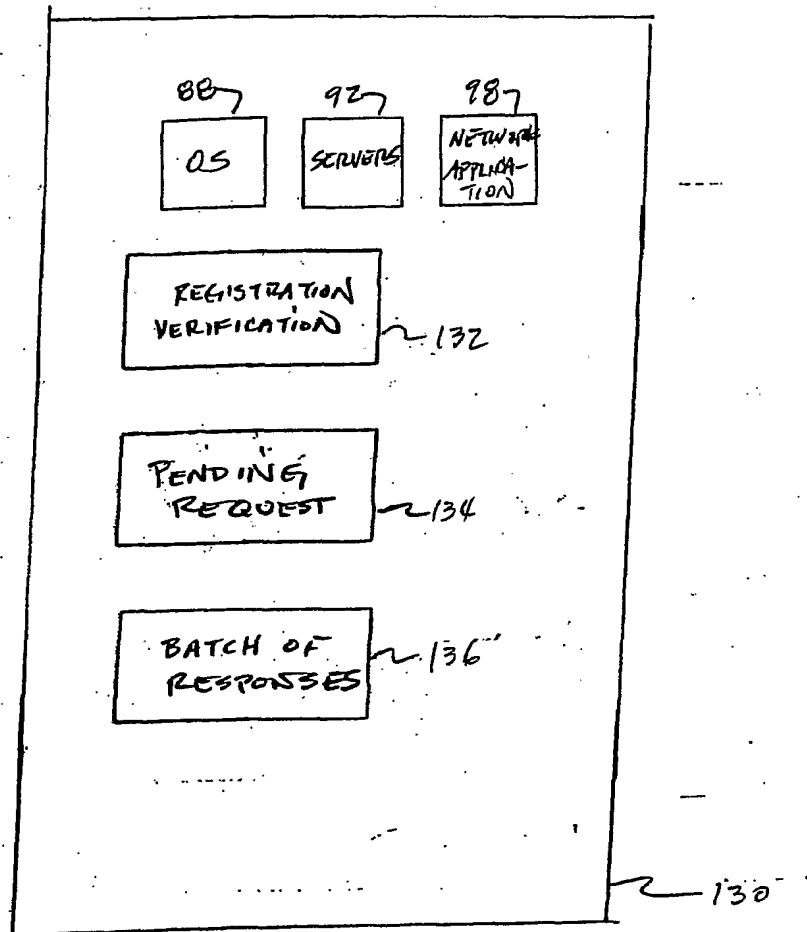 88 92 98
OS
SERVERS
NETWORK
APPLICA-
TION
REGISTRATION
VERIFICATION
132
PENDING
REQUEST
134
BATCH OF
RESPONSES
136
130